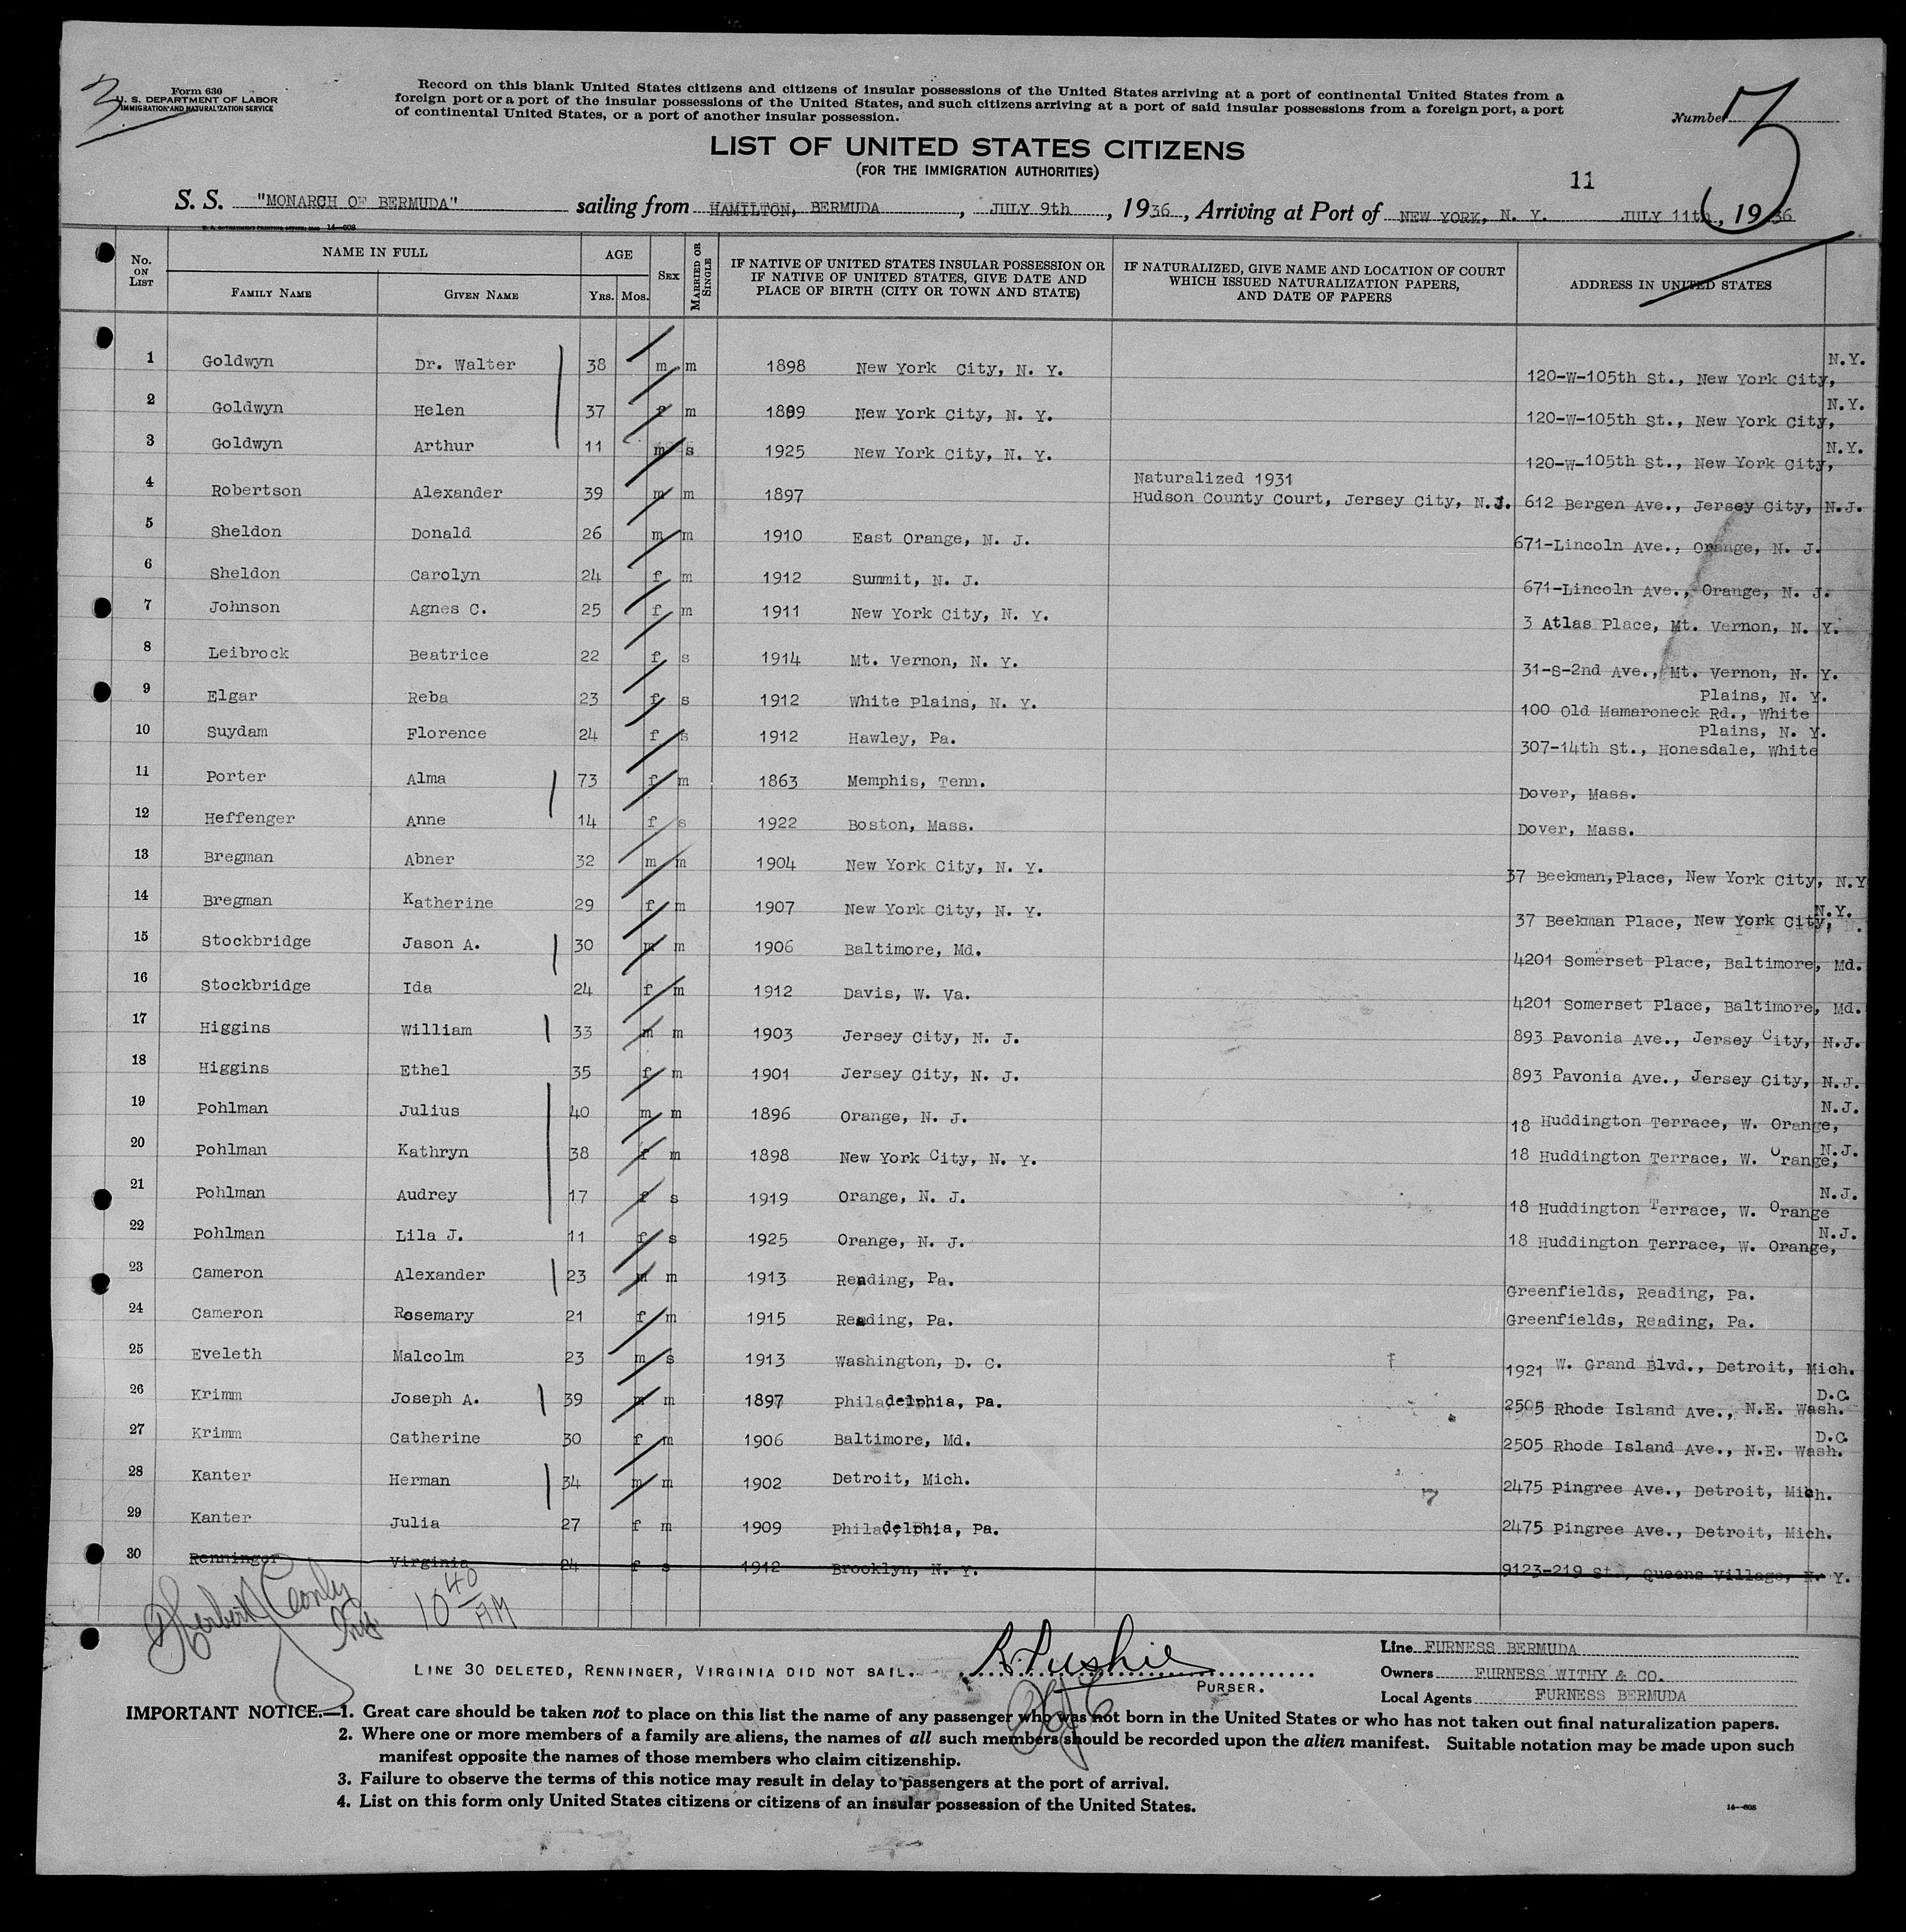 3
Form 630
U. S. DEPARTMENT OF LABOR
IMMIGRATION AND NATURALIZATION SERVICE
Record on this blank United States citizens and citizens of insular possessions of the United States arriving at a port of continental United States from a
foreign port or a port of the insular possessions of the United States, and such citizens arriving at a port of said insular possessions from a foreign port, a port
of continental United States, or a port of another insular possession.
Number
LIST OF UNITED STATES CITIZENS
(FOR THE IMMIGRATION AUTHORITIES)
11
S. S. "MONARCH OF BERMUDA" sailing from HAMILTON, BERMUDA, JULY 9th, 1936, Arriving at Port of NEW YORK, N. Y. JULY 11th, 1936
No. ON LIST NAME IN FULL FAMILY NAME GIVEN NAME AGE YRS. MOS. SEX MARRIED OR SINGLE IF NATIVE OF UNITED STATES INSULAR POSSESSION OR IF NATIVE OF UNITED STATES, GIVE DATE AND PLACE OF BIRTH (CITY OR TOWN AND STATE) IF NATURALIZED, GIVE NAME AND LOCATION OF COURT WHICH ISSUED NATURALIZATION PAPERS, AND DATE OF PAPERS ADDRESS IN UNITED STATES
1 Goldwyn Dr. Walter 38 m m 1898 New York City, N. Y. 120-W-105th St., New York City, N.Y.
2 Goldwyn Helen 37 f m 1899 New York City, N. Y. 120-W-105th St., New York City, N.Y.
3 Goldwyn Arthur 11 m s 1925 New York City, N. Y. 120-W-105th St., New York City, N.Y.
4 Robertson Alexander 39 m m 1897 Naturalized 1931 Hudson County Court, Jersey City, N.J. 612 Bergen Ave., Jersey City, N.J.
5 Sheldon Donald 26 m m 1910 East Orange, N. J. 671-Lincoln Ave., Orange, N. J.
6 Sheldon Carolyn 24 f m 1912 Summit, N. J. 671-Lincoln Ave., Orange, N. J.
7 Johnson Agnes C. 25 f m 1911 New York City, N. Y. 3 Atlas Place, Mt. Vernon, N. Y.
8 Leibrock Beatrice 22 f s 1914 Mt. Vernon, N. Y. 31-S-2nd Ave., Mt. Vernon, N. Y.
9 Elgar Reba 23 f s 1912 White Plains, N. Y. 100 Old Mamaroneck Rd., White Plains, N. Y.
10 Suydam Florence 24 f s 1912 Hawley, Pa. 307-14th St., Honesdale, White Plains, N. Y.
11 Porter Alma 73 f m 1863 Memphis, Tenn. Dover, Mass.
12 Heffenger Anne 14 f s 1922 Boston, Mass. Dover, Mass.
13 Bregman Abner 32 m m 1904 New York City, N. Y. 37 Beekman, Place, New York City, N.Y
14 Bregman Katherine 29 f m 1907 New York City, N. Y. 37 Beekman Place, New York City, N.Y.
15 Stockbridge Jason A. 30 m m 1906 Baltimore, Md. 4201 Somerset Place, Baltimore, Md.
16 Stockbridge Ida 24 f m 1912 Davis, W. Va. 4201 Somerset Place, Baltimore, Md.
17 Higgins William 33 m m 1903 Jersey City, N. J. 893 Pavonia Ave., Jersey City, N.J.
18 Higgins Ethel 35 f m 1901 Jersey City, N. J. 893 Pavonia Ave., Jersey City, N.J.
19 Pohlman Julius 40 m m 1896 Orange, N. J. 18 Huddington Terrace, W. Orange, N.J.
20 Pohlman Kathryn 38 f m 1898 New York City, N. Y. 18 Huddington Terrace, W. Orange, N.J.
21 Pohlman Audrey 17 f s 1919 Orange, N. J. 18 Huddington Terrace, W. Orange N.J.
22 Pohlman Lila J. 11 f s 1925 Orange, N. J. 18 Huddington Terrace, W. Orange, N.J.
23 Cameron Alexander 23 m m 1913 Reading, Pa. Greenfields, Reading, Pa.
24 Cameron Rosemary 21 f m 1915 Reading, Pa. Greenfields, Reading, Pa.
25 Eveleth Malcolm 23 m s 1913 Washington, D. C. 1921 W. Grand Blvd., Detroit, Mich.
26 Krimm Joseph A. 39 m m 1897 Philadelphia, Pa. 2505 Rhode Island Ave., N.E. Wash. D.C.
27 Krimm Catherine 30 f m 1906 Baltimore, Md. 2505 Rhode Island Ave., N.E. Wash. D.C.
28 Kanter Herman 34 m m 1902 Detroit, Mich. 2475 Pingree Ave., Detroit, Mich.
29 Kanter Julia 27 f m 1909 Philadelphia, Pa. 2475 Pingree Ave., Detroit, Mich.
30 Renninger Virginia 24 f s 1912 Brooklyn, N. Y. 9123-219 St., Queens Village, N. Y.
10 40 AM
LINE 30 DELETED, RENNINGER, VIRGINIA DID NOT SAIL.
PURSER.
Line FURNESS BERMUDA
Owners FURNESS WITHY & CO.
Local Agents FURNESS BERMUDA
IMPORTANT NOTICE.—1. Great care should be taken not to place on this list the name of any passenger who was not born in the United States or who has not taken out final naturalization papers.
2. Where one or more members of a family are aliens, the names of all such members should be recorded upon the alien manifest. Suitable notation may be made upon such
manifest opposite the names of those members who claim citizenship.
3. Failure to observe the terms of this notice may result in delay to passengers at the port of arrival.
4. List on this form only United States citizens or citizens of an insular possession of the United States.
14—608